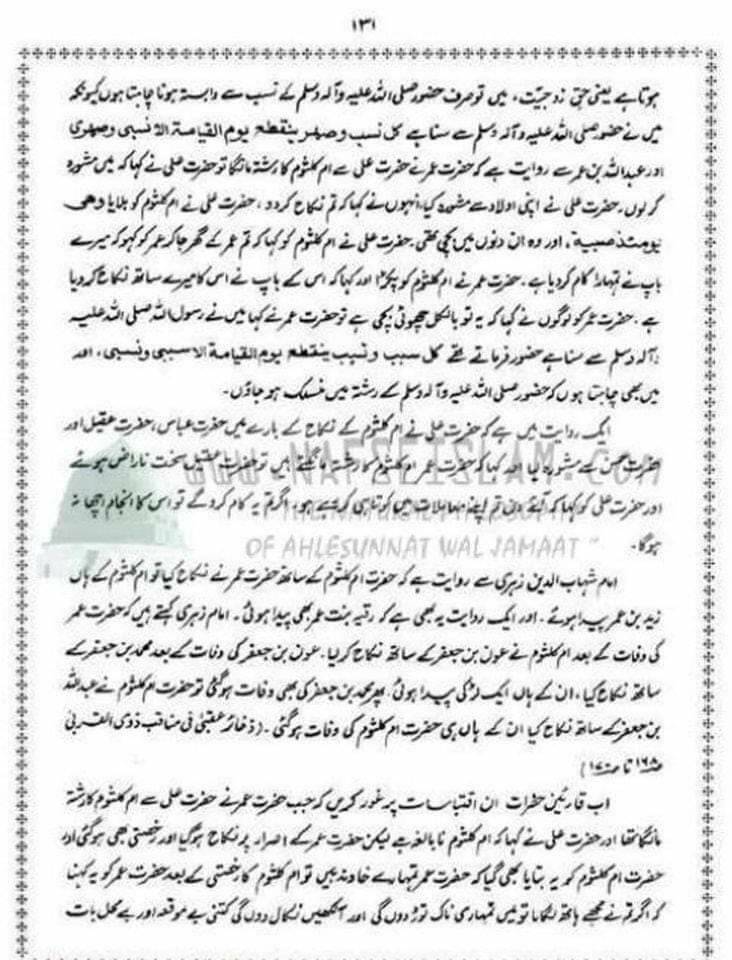 ۱۳۱
ہوتا ہے یعنی حق زوجیت، میں تو صرف حضور صلی اللہ علیہ وآلہ وسلم کے نسب سے وابستہ ہونا چاہتا ہوں کیونکہ
میں نے حضور صلی اللہ علیہ وآلہ وسلم سے سنا ہے کل نسب وصہر ینقطع یوم القیامۃ الا نسبی وصہری
اور عبداللہ بن عمر سے روایت ہے کہ حضرت عمر نے حضرت علی سے ام کلثوم کا رشتہ مانگا تو حضرت علی نے کہا کہ میں مشورہ
کر لوں۔ حضرت علی نے اپنی اولاد سے مشورہ کیا، انہوں نے کہا کہ تم نکاح کر دو، حضرت علی نے ام کلثوم کو بلایا وھی
یومئذ صبیۃ، اور وہ ان دنوں میں بچی تھی۔ حضرت علی نے ام کلثوم کو کہا کہ تم عمر کے گھر جا کر عمر کو کہو کہ میرے
باپ نے تمہارا کام کر دیا ہے۔ حضرت عمر نے ام کلثوم کو پکڑا اور کہا کہ اس کے باپ نے اس کا میرے ساتھ نکاح کر دیا
ہے۔ حضرت عمر کو لوگوں نے کہا کہ یہ تو بالکل چھوٹی بچی ہے تو حضرت عمر نے کہا میں نے رسول اللہ صلی اللہ علیہ
وآلہ وسلم سے سنا ہے حضور فرماتے تھے کل سبب ونسب ینقطع یوم القیامۃ الا سببی ونسبی، اور
میں بھی چاہتا ہوں کہ حضور صلی اللہ علیہ وآلہ وسلم کے رشتہ میں منسلک ہو جاؤں۔
ایک روایت میں ہے کہ حضرت علی نے ام کلثوم کے نکاح کے بارے میں حضرت عباس، حضرت عقیل اور
حضرت حسن سے مشورہ کیا اور کہا کہ حضرت عمر ام کلثوم کا رشتہ مانگتے ہیں تو حضرت عقیل سخت ناراض ہوئے
اور حضرت علی کو کہا کہ آئے دن تم اپنے معاملات میں کوتاہی کرتے ہو، اگر تم یہ کام کرو گے تو اس کا انجام اچھا نہ
ہوگا۔
امام شہاب الدین زہری سے روایت ہے کہ حضرت ام کلثوم کے ساتھ حضرت عمر نے نکاح کیا تو ام کلثوم کے ہاں
زید بن عمر پیدا ہوئے۔ اور ایک روایت یہ بھی ہے کہ رقیہ بنت عمر بھی پیدا ہوئی۔ امام زہری کہتے ہیں کہ حضرت عمر
کی وفات کے بعد ام کلثوم نے عون بن جعفر کے ساتھ نکاح کر لیا۔ عون بن جعفر کی وفات کے بعد محمد بن جعفر کے
ساتھ نکاح کیا، ان کے ہاں ایک لڑکی پیدا ہوئی۔ پھر محمد بن جعفر کی بھی وفات ہو گئی تو حضرت ام کلثوم نے عبداللہ
بن جعفر کے ساتھ نکاح کیا ان کے ہاں ہی حضرت ام کلثوم کی وفات ہو گئی۔ (ذخائر عقبیٰ فی مناقب ذوی القربیٰ
ص۱۶۸ تا ص۱۷۰)
اب قارئین حضرات ان اقتباسات پر غور کریں کہ جب حضرت عمر نے حضرت علی سے ام کلثوم کا رشتہ
مانگا تھا اور حضرت علی نے کہا کہ ام کلثوم نابالغہ ہے لیکن حضرت عمر کے اصرار پر نکاح ہو گیا اور رخصتی بھی ہو گئی اور
حضرت ام کلثوم کو یہ بتایا بھی گیا کہ حضرت عمر تمہارے خاوند ہیں تو ام کلثوم کا رخصتی کے بعد حضرت عمر کو یہ کہنا
کہ اگر تم نے مجھے ہاتھ لگایا تو میں تمہاری ناک توڑ دوں گی اور آنکھیں نکال دوں گی کتنی بے موقعہ اور بے محل بات
WWW.NAFSEISLAM.COM
OF AHLESUNNAT WAL JAMAAT "